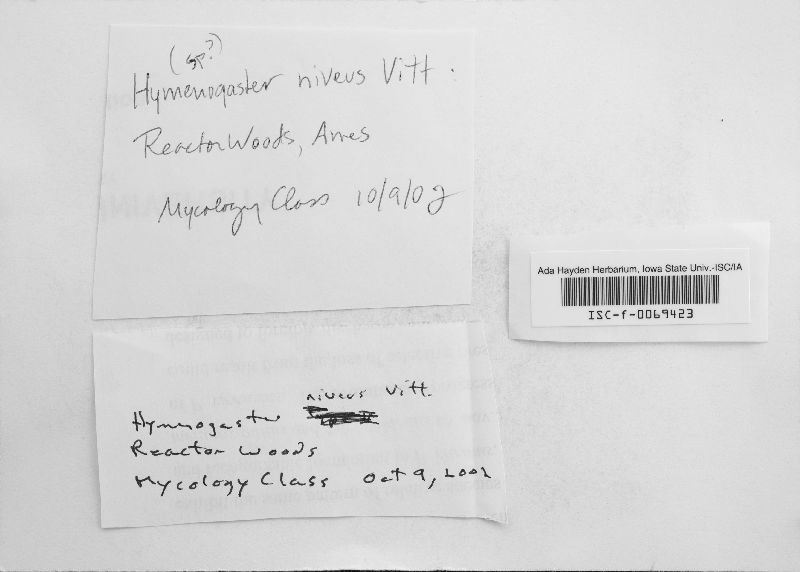 (sp?)
Hymenogaster niveus Vitt.
Reactor Woods, Ames
Mycology Class 10/9/02
Ada Hayden Herbarium, Iowa State Univ.-ISC/IA
ISC-f-0069423
niveus Vitt.
Hymenogaster
Reactor Woods
Mycology Class Oct 9, 2002